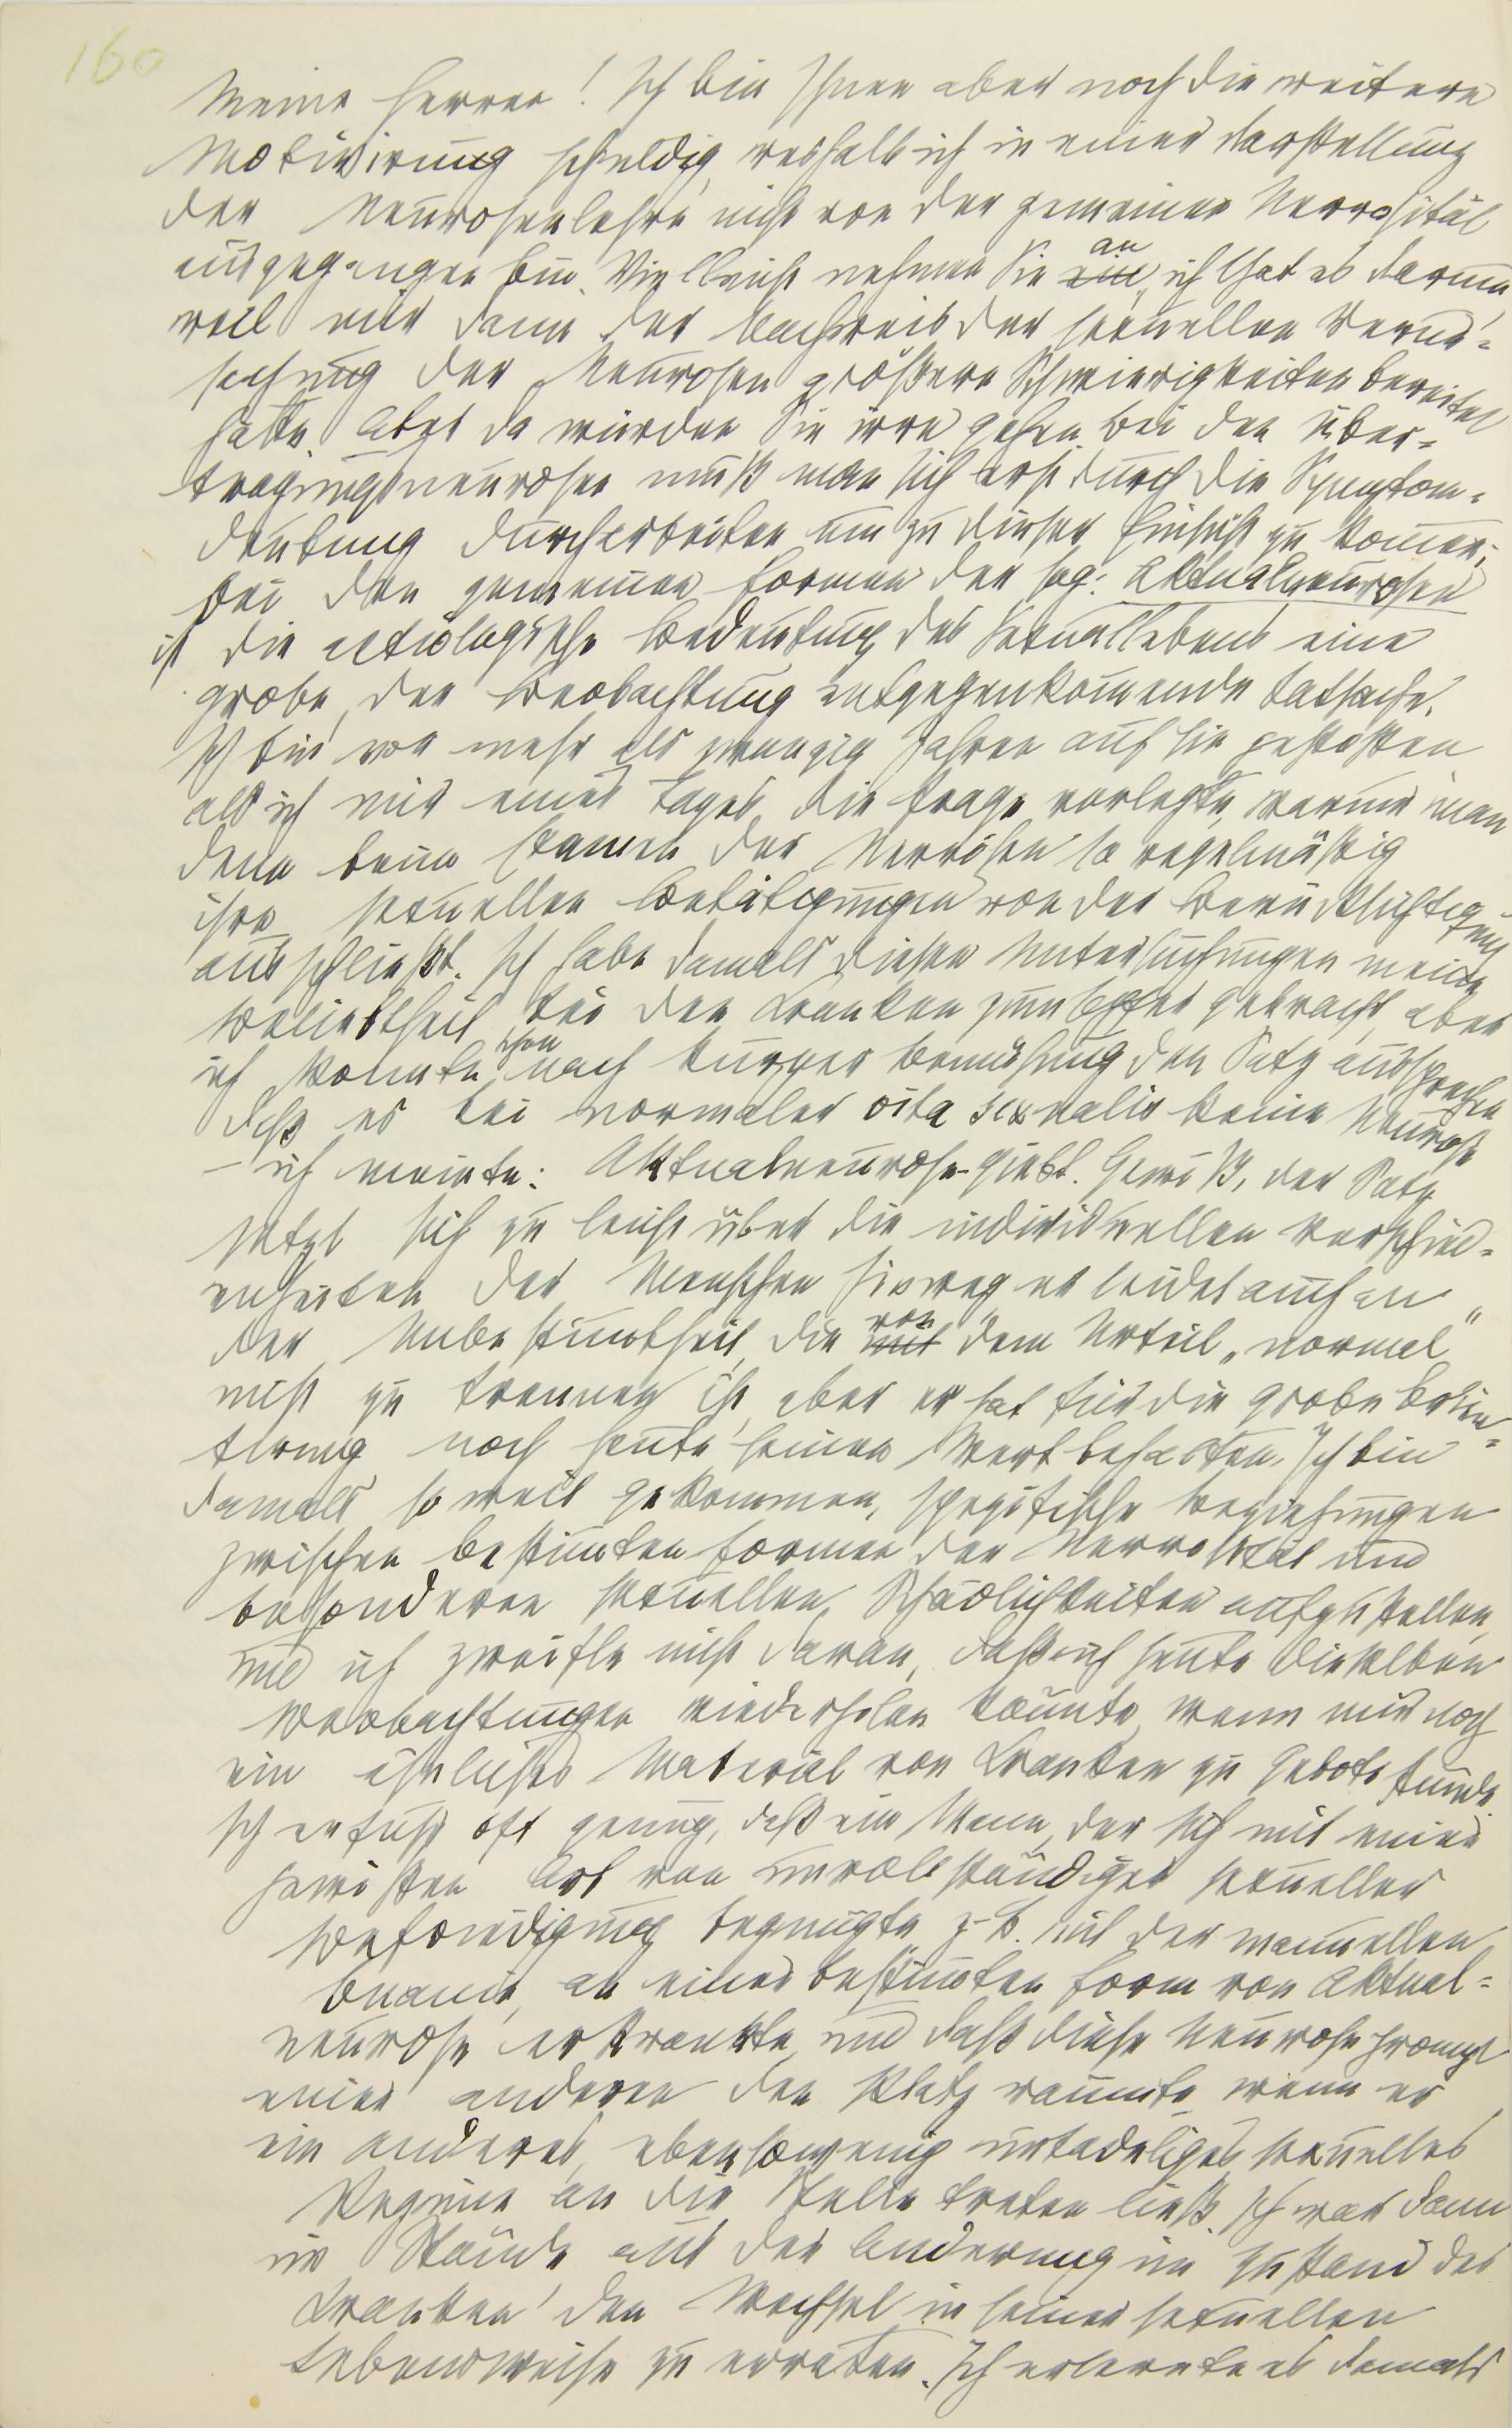 160
Meine Herren! Ich bin Ihnen aber noch die weitere
Motivirung schuldig, weshalb ich in einer Darstellung
der Neurosenlehre nicht von der gemeinen Nervosität
ausgegangen bin. Vielleicht nehmen Sie an, ich that es darum
weil mir dann der Nachweis der sexuellen Verur=
sachung der Neurosen größere Schwierigkeiten bereitet
hätte. Aber da würden Sie irre gehen. Bei den Über=
tragungsneurosen muß man sich erst durch die Symptom=
deutung durcharbeiten um zu dieser Einsicht zu kom̄en;
bei den gemeinen Formen der sog: Aktualneurosen
ist die aetiologische Bedeutung des Sexuallebens eine
grobe, der Beobachtung entgegenkom̄ende Tatsache.
Ich bin vor mehr als zwanzig Jahren auf sie gestoßen
als ich mir eines Tages die Frage vorlegte, warum man
denn beim Examen der Nervösen so regelmäßig
ihre sexuellen Betätigungen von der Berücksichtigung
ausschließt. Ich habe damals diesen Untersuchungen meine
Beliebtheit bei den Kranken zum Opfer gebracht, aber
ich konnte schon nach kurzer Bemühung den Satz aussprechen
daß es bei normaler vita sexualis keine Neurose
– ich meinte: Aktualneurose – giebt. Gewiß, der Satz
setzt sich zu leicht über die individuellen Verschied=
enheiten der Menschen hinweg er leidet auch an
der Unbestim̄theit, die von dem Urteil „normal"
nicht zu trennen ist, aber er hat für die grobe Orien=
tirung noch heute seinen Wert behalten. Ich bin
damals so weit gekommen, spezifische Beziehungen
zwischen bestim̄ten Formen der Nervosität und
besonderen sexuellen Schädlichkeiten aufzustellen,
und ich zweifle nicht daran, daß ich heute dieselben
Beobachtungen wiederholen könnte, wenn mir noch
ein ähnliches Material von Kranken zu Gebote stünde.
Ich erfuhr oft genug, daß ein Mann, der sich mit einer
gewissen Art von unvollständiger sexueller
Befriedigung begnügte z. B. mit der manuellen
Onanie, an einer bestim̄ten Form von Aktual=
neurose erkrankte, und daß diese Neurose prompt
einer anderen den Platz räumte, wenn er
ein anderes, ebensowenig untadeliges sexuelles
Regime an die Stelle treten ließ. Ich war dann
im Stande aus der Änderung im Zustand des
Kranken den Wechsel in seiner sexuellen
Lebensweise zu erraten. Ich erlernte es damals